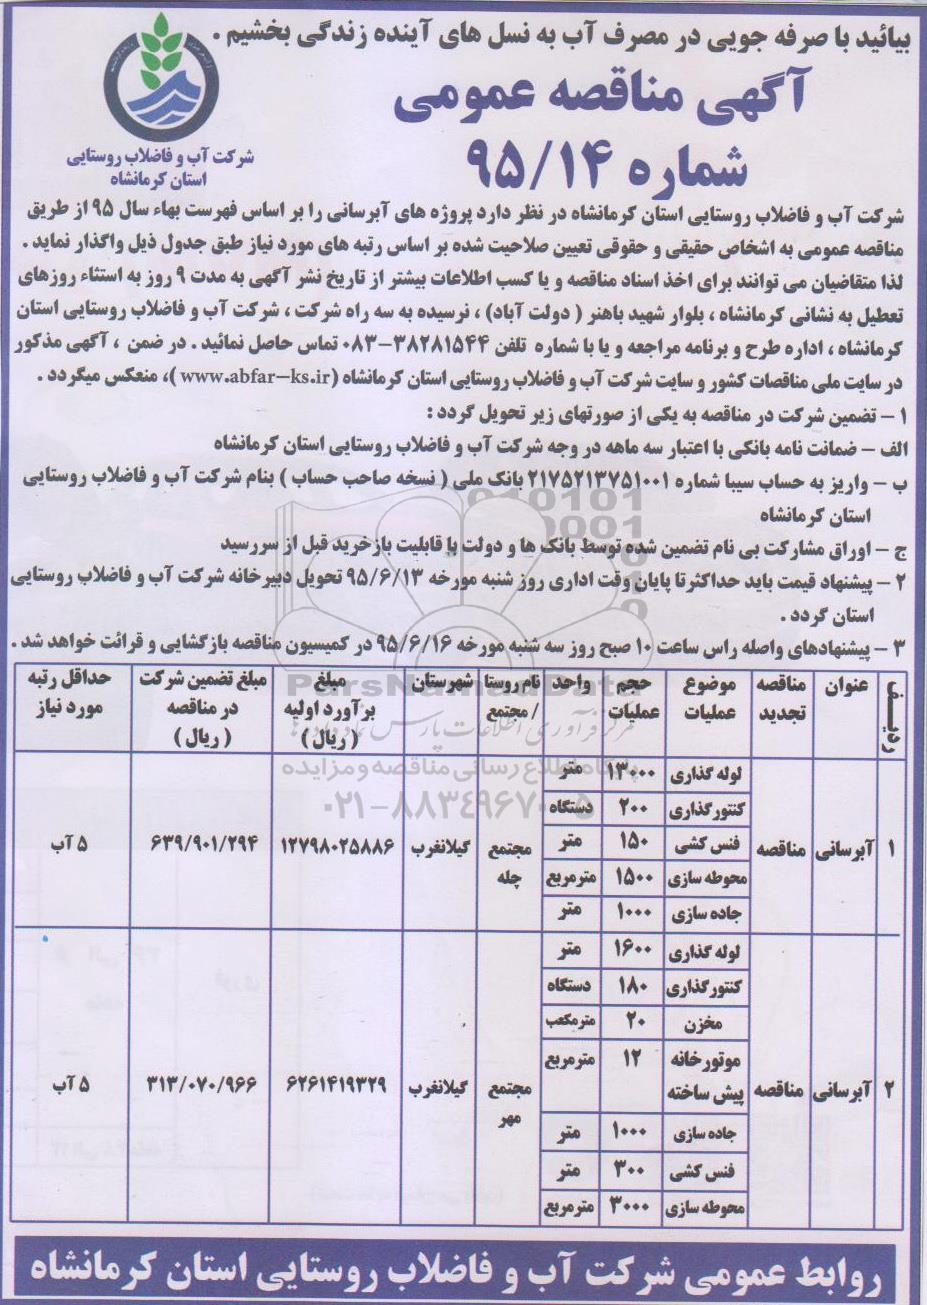 بیائید با صرفه جویی در مصرف آب به نسل های آینده زندگی بخشیم .
آگهی مناقصه عمومی
شماره ۹۵/۱۴
شرکت آب و فاضلاب روستایی
استان کرمانشاه
شرکت آب و فاضلاب روستایی استان کرمانشاه در نظر دارد پروژه های آبرسانی را بر اساس فهرست بهاء سال ۹۵ از طریق
مناقصه عمومی به اشخاص حقیقی و حقوقی تعیین صلاحیت شده بر اساس رتبه های مورد نیاز طبق جدول ذیل واگذار نماید .
لذا متقاضیان می توانند برای اخذ اسناد مناقصه و یا کسب اطلاعات بیشتر از تاریخ نشر آگهی به مدت ۹ روز به استثاء روزهای
تعطیل به نشانی کرمانشاه ، بلوار شهید باهنر ( دولت آباد) ، نرسیده به سه راه شرکت ، شرکت آب و فاضلاب روستایی استان
کرمانشاه ، اداره طرح و برنامه مراجعه و یا با شماره تلفن ۳۸۲۸۱۵۴۴-۰۸۳ تماس حاصل نمائید . در ضمن ، آگهی مذکور
در سایت ملی مناقصات کشور و سایت شرکت آب و فاضلاب روستایی استان کرمانشاه (www.abfar-ks.ir)، منعکس میگردد .
۱ - تضمین شرکت در مناقصه به یکی از صورتهای زیر تحویل گردد :
الف - ضمانت نامه بانکی با اعتبار سه ماهه در وجه شرکت آب و فاضلاب روستایی استان کرمانشاه
ب - واریز به حساب سیبا شماره ۲۱۷۵۲۱۳۷۵۱۰۰۱ بانک ملی ( نسخه صاحب حساب ) بنام شرکت آب و فاضلاب روستایی
استان کرمانشاه
ج - اوراق مشارکت بی نام تضمین شده توسط بانک ها و دولت با قابلیت بازخرید قبل از سررسید
۲ - پیشنهاد قیمت باید حداکثر تا پایان وقت اداری روز شنبه مورخه ۹۵/۶/۱۳ تحویل دبیرخانه شرکت آب و فاضلاب روستایی
استان گردد .
۳ - پیشنهادهای واصله راس ساعت ۱۰ صبح روز سه شنبه مورخه ۹۵/۶/۱۶ در کمیسیون مناقصه بازگشایی و قرائت خواهد شد .
ردیف عنوان مناقصه تجدید موضوع عملیات حجم عملیات واحد نام روستا / مجتمع شهرستان مبلغ برآورد اولیه ( ریال) مبلغ تضمین شرکت در مناقصه ( ریال) حداقل رتبه مورد نیاز
۱ آبرسانی مناقصه لوله گذاری ۱۳۰۰۰ متر مجتمع چله گیلانغرب ۱۲۷۹۸۰۲۵۸۸۶ ۶۳۹/۹۰۱/۲۹۴ ۵ آب
کنتور گذاری ۲۰۰ دستگاه
فنس کشی ۱۵۰ متر
محوطه سازی ۱۵۰۰ مترمربع
جاده سازی ۱۰۰۰ متر
۲ آبرسانی مناقصه لوله گذاری ۱۶۰۰ متر مجتمع مهر گیلانغرب ۶۲۶۱۴۱۹۳۲۹ ۳۱۳/۰۷۰/۹۶۶ ۵ آب
کنتور گذاری ۱۸۰ دستگاه
مخزن ۲۰ مترمکعب
موتورخانه پیش ساخته ۱۲ مترمربع
جاده سازی ۱۰۰۰ متر
فنس کشی ۳۰۰ متر
محوطه سازی ۳۰۰۰ مترمربع
روابط عمومی شرکت آب و فاضلاب روستایی استان کرمانشاه
ParsNamadData
مرکز فرآوری اطلاعات پارس نماد داده ها
پایگاه اطلاع رسانی مناقصه و مزایده
۰۲۱-۸۸۳۴۹۶۷۰-۵